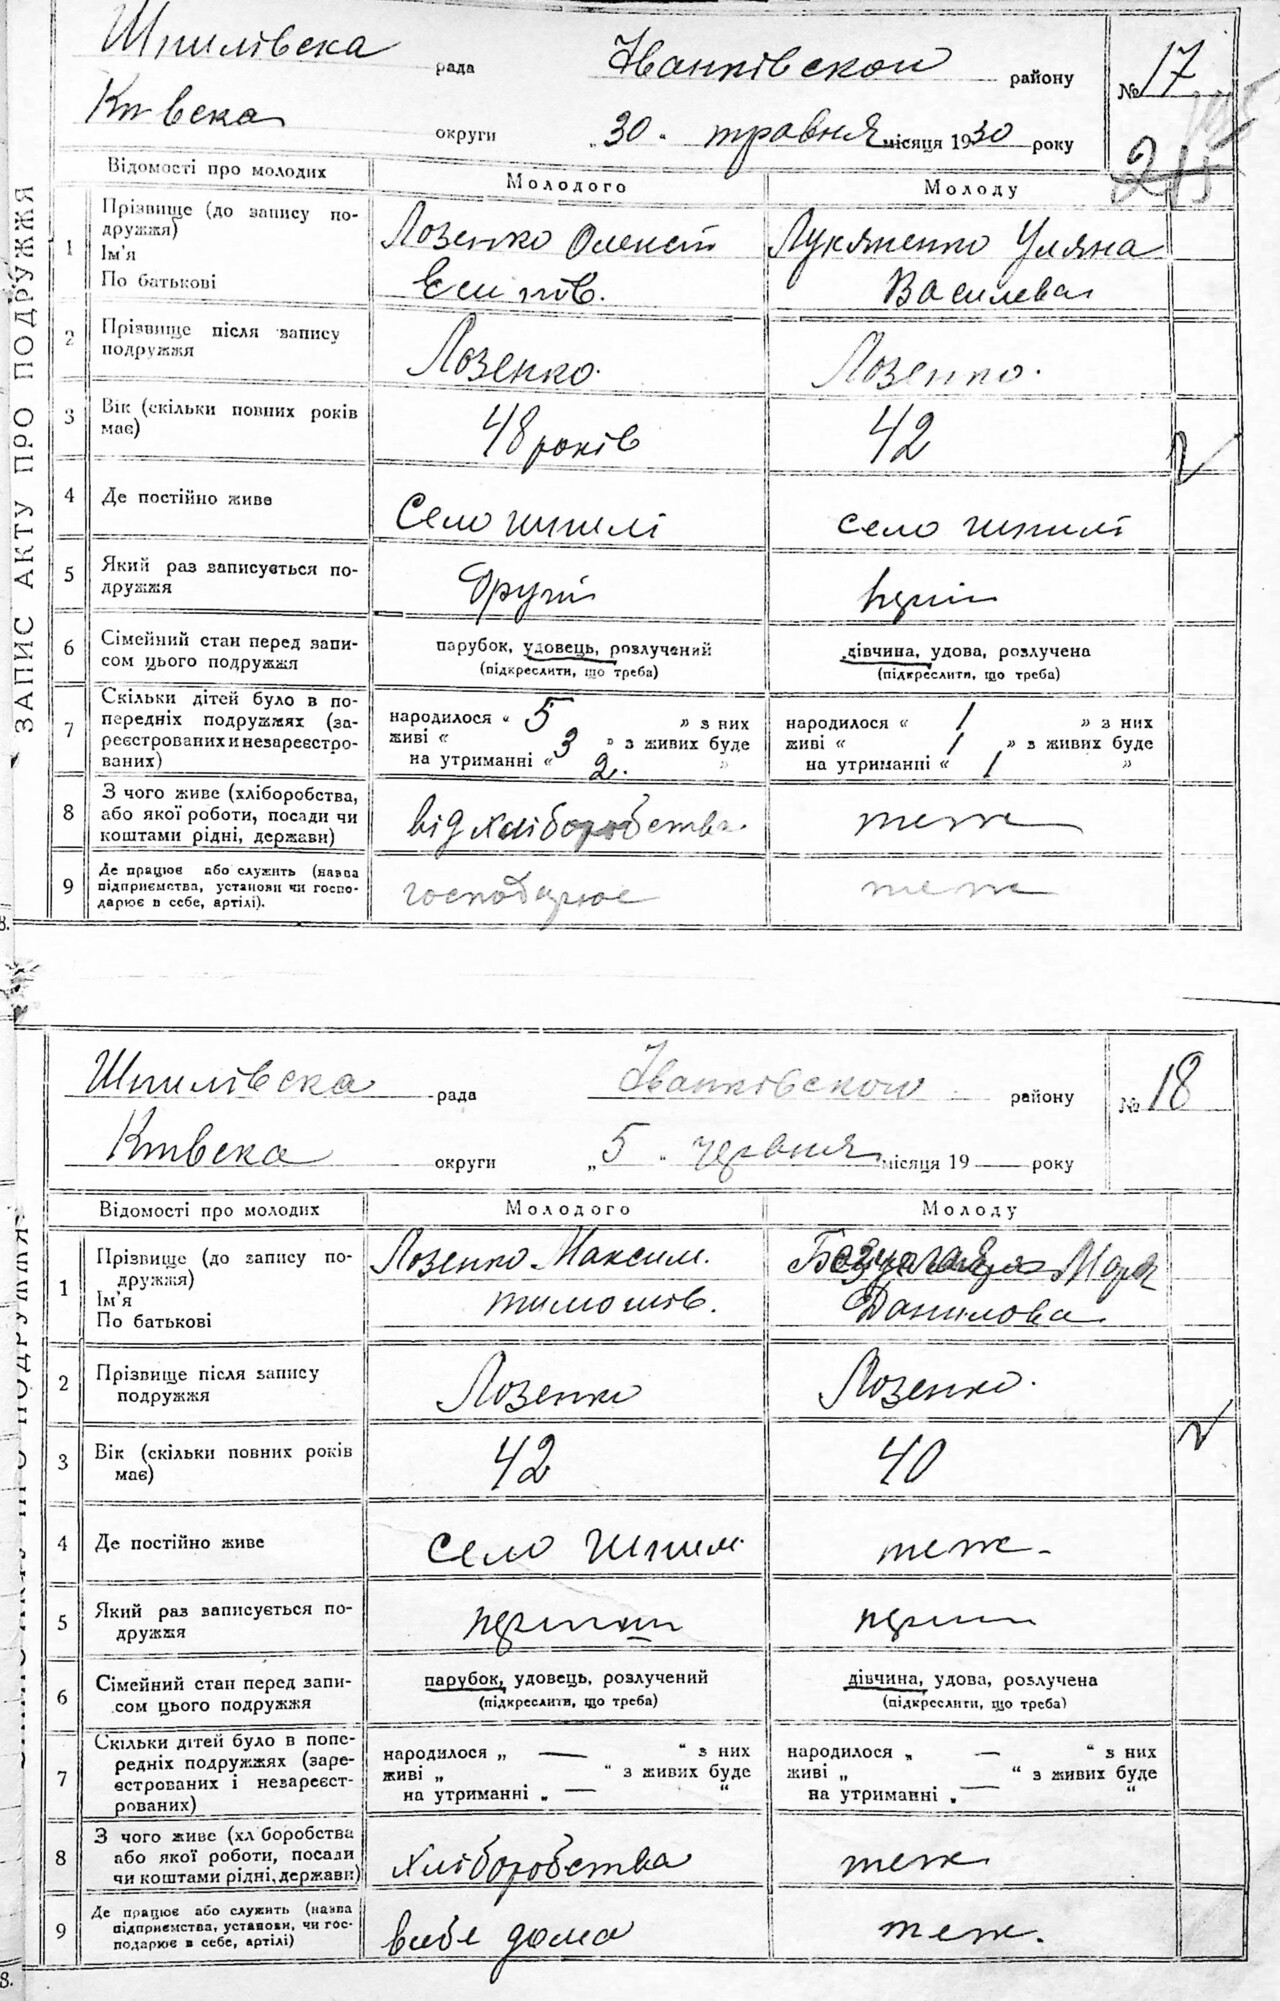 ЗАПИС АКТУ ПРО ПОДРУЖЖЯ
Шпилівска рада Іванківскои району № 17
Киівска округи „30" травня місяця 1930 року 215
Відомості про молодих Молодого Молоду
1 Прізвище (до запису подружжя) Лозенко Олексій Лукяненко Уляна
Ім'я
По батькові Есипов. Василева
2 Прізвище після запису
подружжя Лозенко. Лозенко.
3 Вік (скільки повних років
має) 48 років 42
4 Де постійно живе Село шпилі село шпилі
5 Який раз записується по-
дружжя Другий перши
6 Сімейний стан перед запи- парубок, удовець, розлучений дівчина, удова, розлучена
сом цього подружжя (підкреслити, що треба) (підкреслити, що треба)
7 Скільки дітей було в по-
передніх подружжях (за- народилося „ 5 " з них народилося „ 1 " з них
реєстрованих и незареєстро- живі „ 3 " з живих буде живі „ 1 " з живих буде
ваних) на утриманні „ 2. " на утриманні „ 1 "
8 З чого живе (хліборобства,
або якої роботи, посади чи від хліборобства. теж
коштами рідні, держави)
9 Де працює або служить (назва
підприємства, установи чи госпо- господарює теж
дарює в себе, артілі).
Шпилівска рада Іванківскои району № 18
Киівска округи „5" червня місяця 19 — року
Відомості про молодих Молодого Молоду
1 Прізвище (до запису по- Лозенко Максим.
дружжя)
Ім'я Тимошів. Данилова
По батькові
2 Прізвище після запису
подружжя Лозенко Лозенко.
3 Вік (скільки повних років
має) 42 40
4 Де постійно живе село Шпилі теж.
5 Який раз записується по-
дружжя перший перши
6 Сімейний стан перед запи- парубок, удовець, розлучений дівчина, удова, розлучена
сом цього подружжя (підкреслити, що треба) (підкреслити, що треба)
7 Скільки дітей було в попе-
редніх подружжях (заре- народилося „ — " з них народилося „ — " з них
єстрованих і незареєст- живі „ " з живих буде живі „ " з живих буде
рованих) на утриманні „ — " на утриманні „ — "
8 З чого живе (хл боробства
або якої роботи, посади хліборобства теж
чи коштами рідні, держави)
9 Де працює або служить (назва
підприємства, установи, чи гос- в себе дома теж.
подарює в себе, артілі)